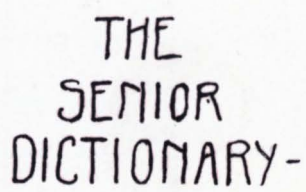 THE
SENIOR
DICTIONARY-